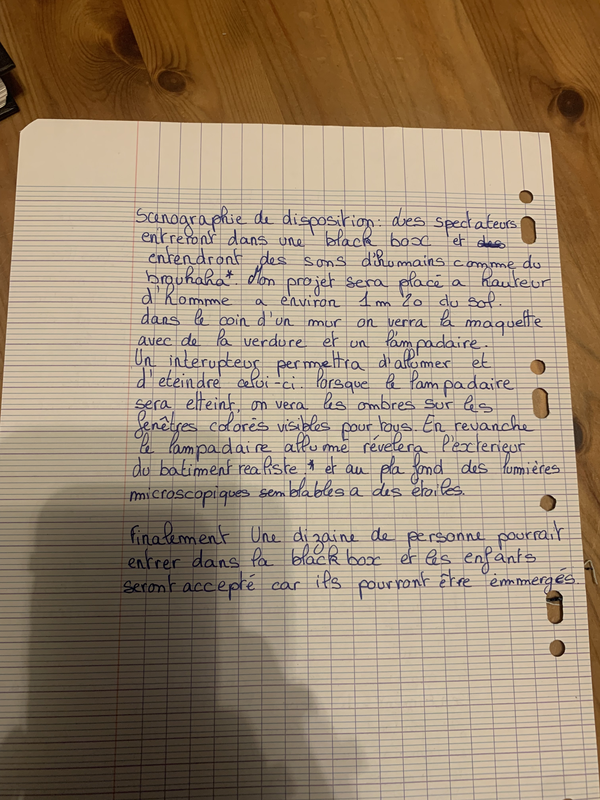 Scenographie de disposition: des spectateurs
entreront dans une black box et des
entendront des sons d'humains comme du
brouhaha*. Mon projet sera placé a hauteur
d'homme a environ 1m20 du sol.
dans le coin d'un mur on verra la maquette
avec de la verdure et un lampadaire.
Un interupteur permettra d'allumer et
d'eteindre celui-ci. lorsque le lampadaire
sera etteint, on vera les ombres sur les
fenêtres colorés visibles pour tous. En revanche
le lampadaire allumé révelera l'exterieur
du batiment realiste * et au pla fond des lumières
microscopiques semblables a des étoiles.
Finalement Une dizaine de personne pourrait
entrer dans la black box et les enfants
seront accepté car ils pourront être emmergés.